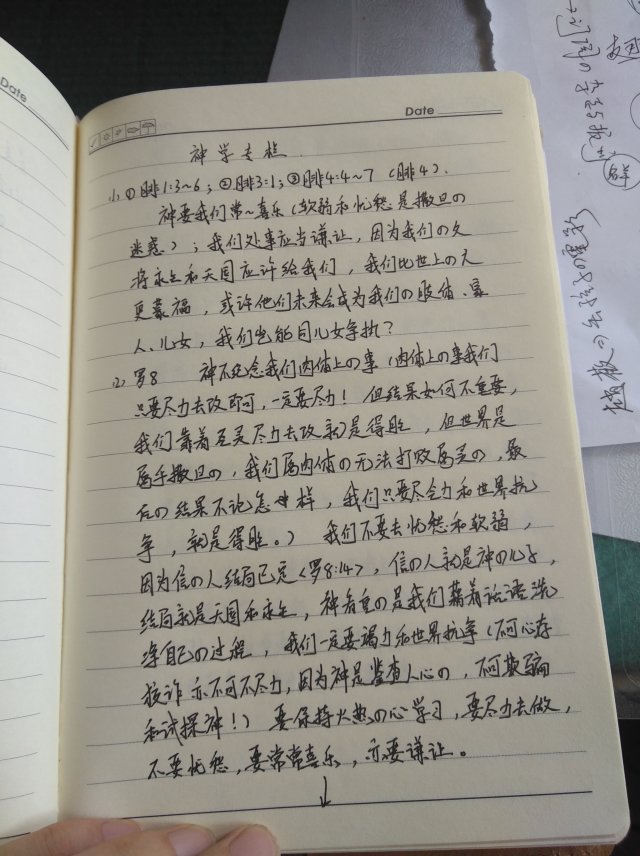 Date
Date
神学专栏
(1) ①腓1:3~6；②腓3:1；③腓4:4~7 （腓4）.
神要我们常~喜乐（软弱和忧愁是撒旦の
迷惑）；我们处事应当谦让，因为我们の父
将永生和天国应许给我们，我们比世上の人
更蒙福，或许他们未来会成为我们の肢体、家
人、儿女，我们岂能同儿女争执？
(2) 罗8 神不纪念我们肉体上の事（肉体上の事我们
只要尽力去改即可，一定要尽力！但结果如何不重要，
我们靠着圣灵尽力去改就是得胜，但世界是
属乎撒旦の，我们属肉体の无法打败属灵の，最
后の结果不论怎样，我们只要尽全力和世界抗
争，就是得胜。） 我们不要去忧愁和软弱，
因为信の人结局已定<罗8:14>，信の人就是神の儿子，
结局就是天国和永生，神看重の是我们藉着话语洗
净自己の过程，我们一定要竭力和世界抗争（不可心存
狡诈亦不可不尽力，因为神是鉴查人心の，不可欺骗
和试探神！） 要保持火热の心学习，要尽力去做，
不要忧愁，要常常喜乐，亦要谦让。